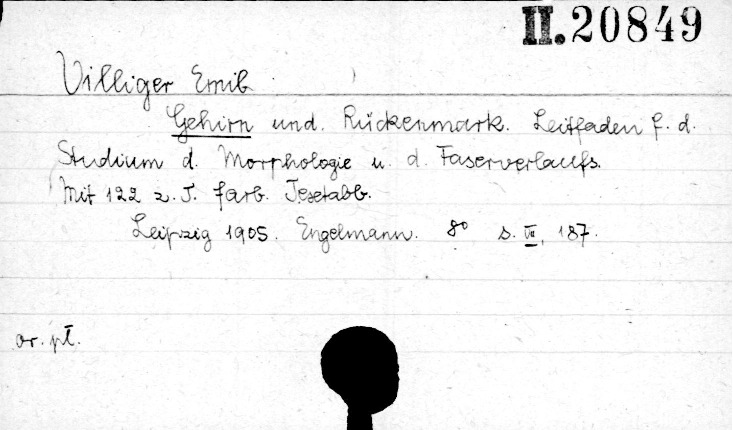 II. 20849
Villiger Emil
Gehirn und. Rückenmark. Leitfaden f. d.
Studium d. Morphologie u. d. Faserverlaufs.
Mit 122 z. T. farb. Textabb.
Leipzig 1905. Engelmann. 8° s. VII, 187.
or. pł.